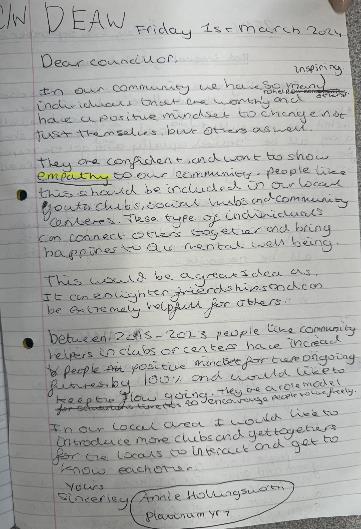 C/W DEAW Friday 1st march 2024
Dear councillor,
inspiring
In our community we have so many
individuals that are worthy and
have a positive mindset to change not
just themselves but others aswell.
They are confident and want to show
empathy to our community. people like
this should be included in our local
youth clubs, social hubs and community
centeres. These type of individuals
can connect others together and bring
happines to our mental well being.
This would be a great idea as,
It can enlighten friendships and can
be extremely helpfull for others.
between 2015-2023 people like community
helpers in clubs or centers have incread
people positive mindset for there ongoing
futures by 100% and would like to
keep the flow going. They are a role model
to encourage people to live freely.
In our local area I would like to
introduce more clubs and get togethers
for the locals to interact and get to
know eachother.
Yours
Sincerley Annie Hollingsworth
Platinum yr 7